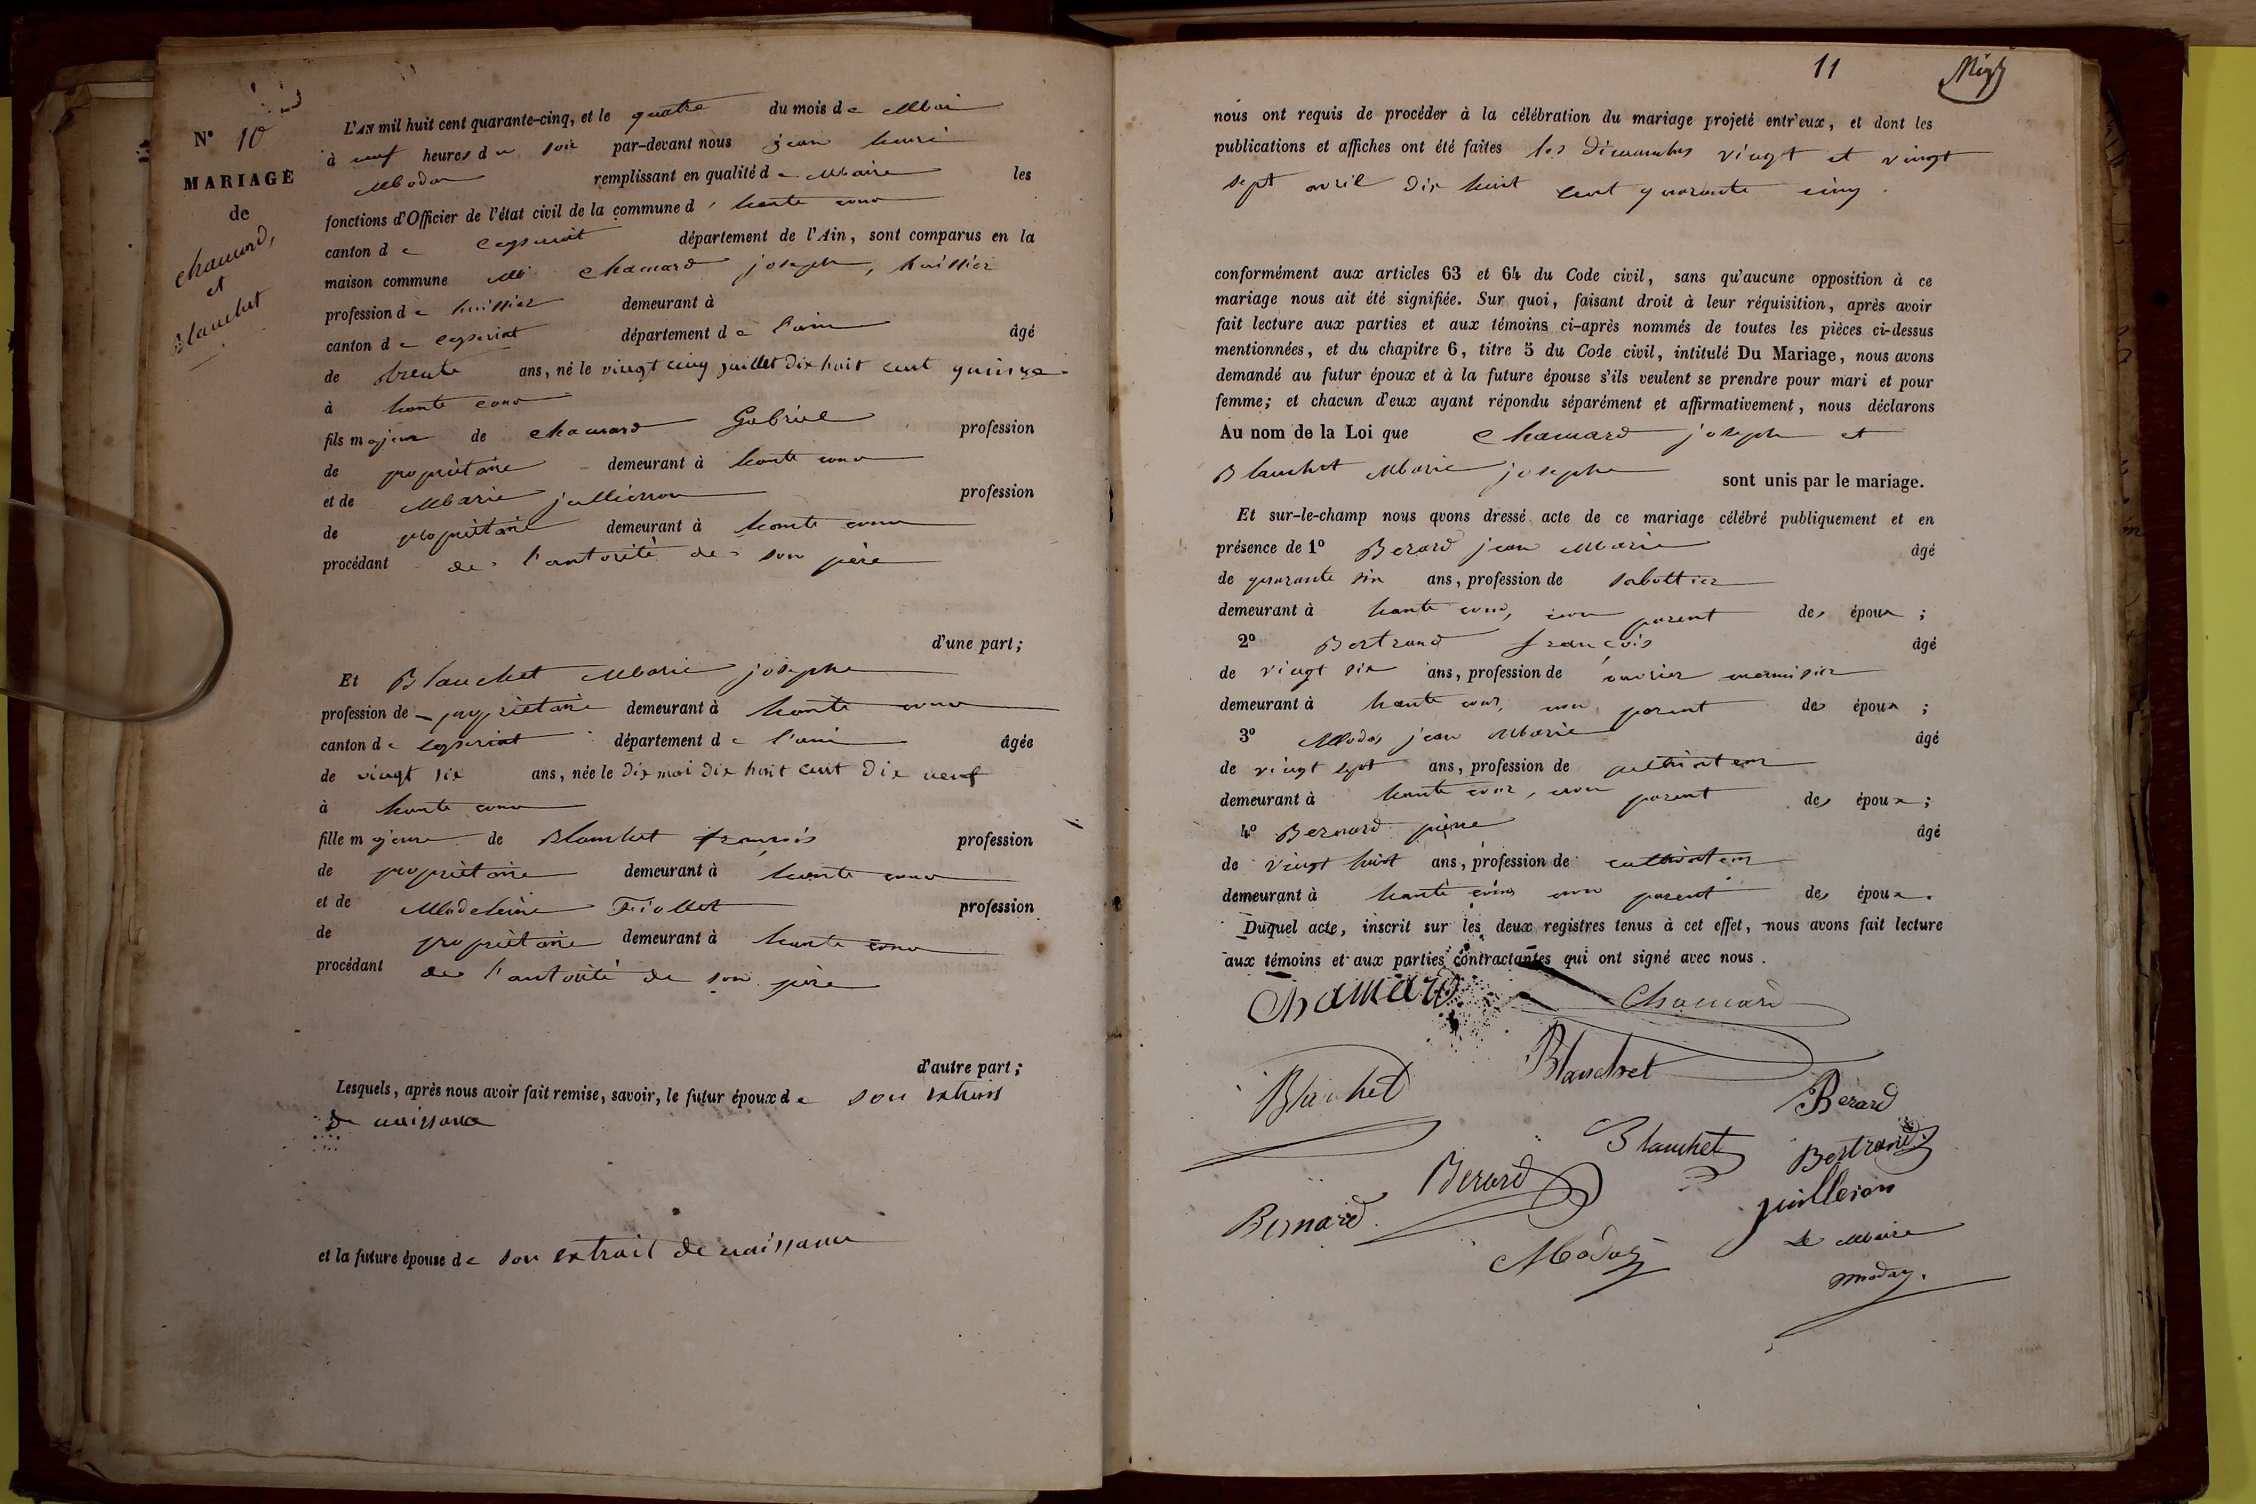 N° 10
MARIAGE
de
chamard,
et
Blanchet
L'AN mil huit cent quarante-cinq, et le quatre du mois de Mai
à neuf heures du soir par-devant nous jean henri
Moday remplissant en qualité de Maire les
fonctions d'Officier de l'état civil de la commune d' haute cour
canton de ceyseriat département de l'Ain, sont comparus en la
maison commune chamard joseph, huissier
profession de huissier demeurant à
canton de ceyseriat département de l'ain âgé
de trente ans, né le vingt cinq juillet dix huit cent quinze
à haute cour
fils majeur de chamard Gabriel profession
de propriétaire demeurant à haute cour
et de Marie jullieron profession
de propriétaire demeurant à haute cour
procédant de l'autorité de son père
d'une part;
Et Blanchet Marie josephe
profession de propriétaire demeurant à haute cour
canton de ceyseriat département de l'ain âgée
de vingt six ans, née le dix mai dix huit cent dix neuf
à haute cour
fille majeure de Blanchet françois profession
de propriétaire demeurant à haute cour
et de Madeleine Fiollet profession
de propriétaire demeurant à haute cour
procédant de l'autorité de son père
d'autre part;
Lesquels, après nous avoir fait remise, savoir, le futur époux de son extrait
de naissance
et la future épouse de son extrait de naissance
11
nous ont requis de procéder à la célébration du mariage projeté entr'eux, et dont les
publications et affiches ont été faites les dimanches vingt et vingt
sept avril dix huit cent quarante cinq.
conformément aux articles 63 et 64 du Code civil, sans qu'aucune opposition à ce
mariage nous ait été signifiée. Sur quoi, faisant droit à leur réquisition, après avoir
fait lecture aux parties et aux témoins ci-après nommés de toutes les pièces ci-dessus
mentionnées, et du chapitre 6, titre 5 du Code civil, intitulé Du Mariage, nous avons
demandé au futur époux et à la future épouse s'ils veulent se prendre pour mari et pour
femme; et chacun d'eux ayant répondu séparément et affirmativement, nous déclarons
Au nom de la Loi que chamard joseph et
Blanchet Marie josephe sont unis par le mariage.
Et sur-le-champ nous avons dressé acte de ce mariage célébré publiquement et en
présence de 1° Berard jean Marie âgé
de quarante six ans, profession de sabottier
demeurant à haute cour, non parent des époux;
2° Bertrand françois âgé
de vingt six ans, profession de ouvrier menuisier
demeurant à haute cour, non parent des époux;
3° Moday jean Marie âgé
de vingt sept ans, profession de cultivateur
demeurant à haute cour, non parent des époux;
4° Bernard pierre âgé
de vingt huit ans, profession de cultivateur
demeurant à haute cour non parent des époux.
Duquel acte, inscrit sur les deux registres tenus à cet effet, nous avons fait lecture
aux témoins et aux parties contractantes qui ont signé avec nous.
Chamard Chamard
Blanchet Blanchet
Bérard
Blanchet Bertrand
Berard juilleron
Bernard
Moday Le Maire
moday.